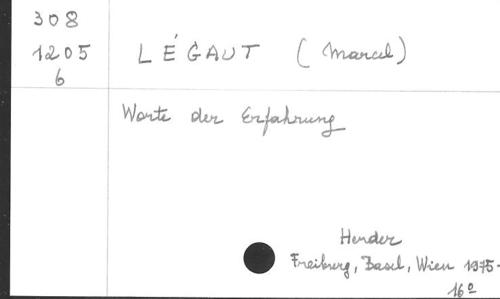 308
1205
6
LÉGAUT (Marcel)
Worte der Erfahrung
Herder
Freiburg, Basel, Wien 1975.
16º